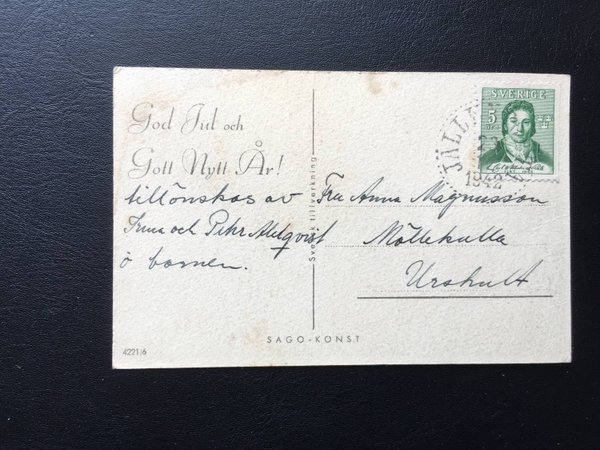 God Jul och
Gott Nytt År!
tillönskas av
Irma och Pehr Ahlqvist
o barnen.
Svensk tillverkning
Fru Anna Magnusson
Möllekulla
Urshult
SVERIGE
5
ÖRE
JÄLL
1942
SAGO-KONST
4221/6